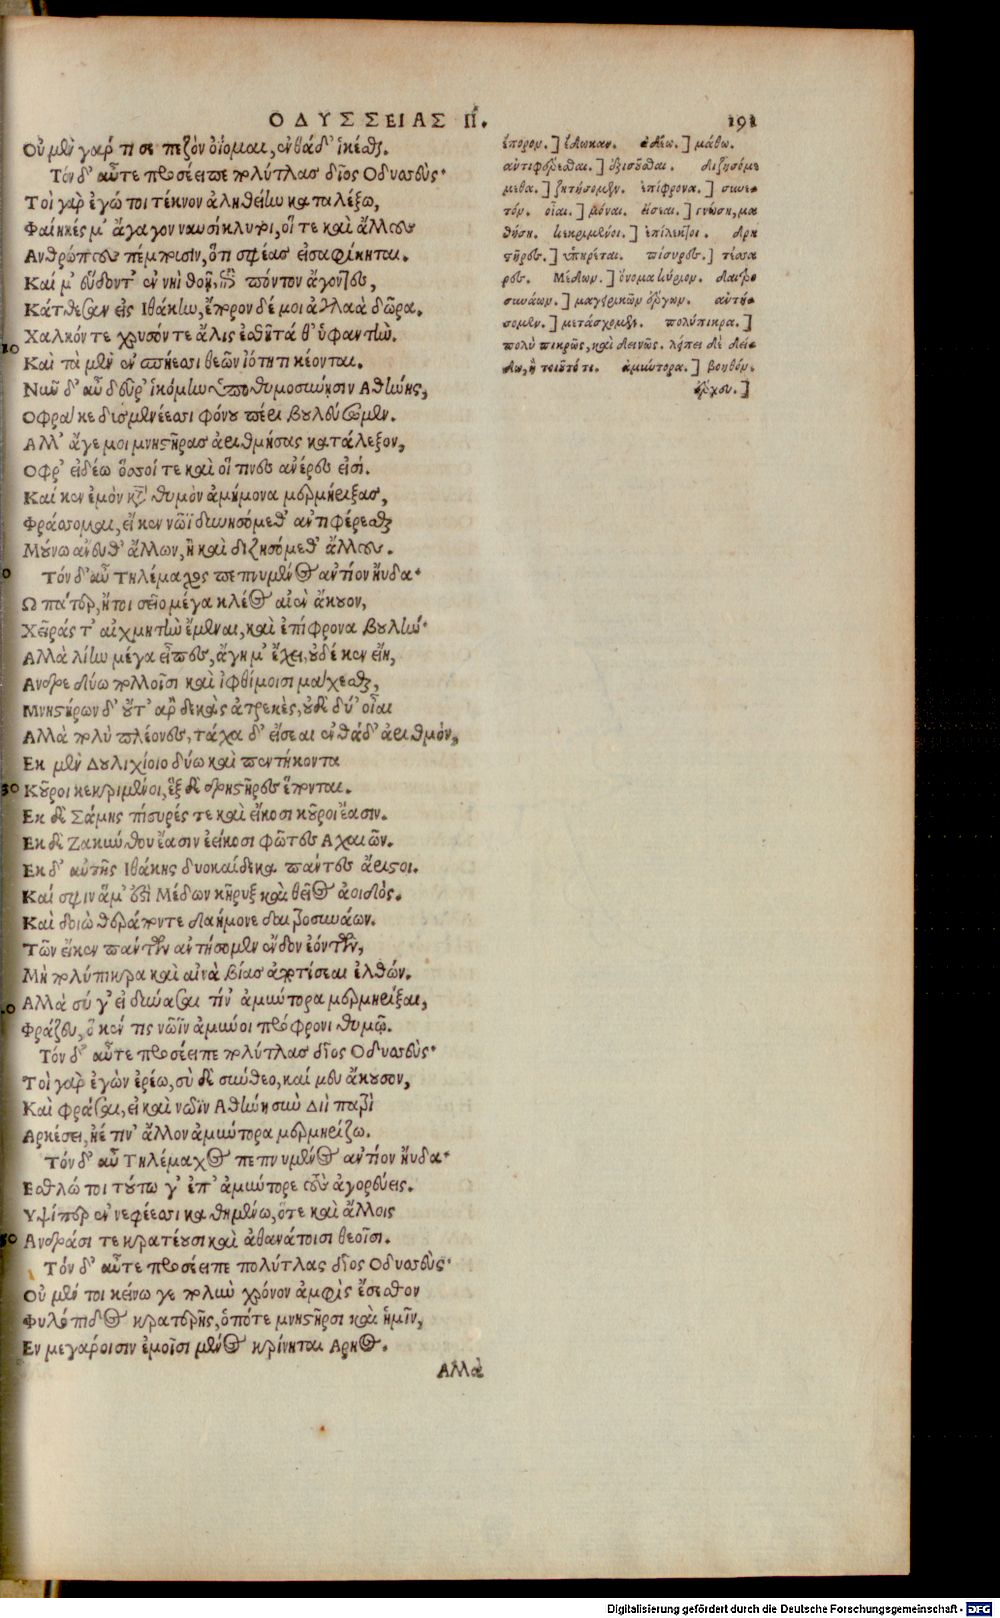 ΟΔΥΣΣΕΙΑΣ Π. 191
Οὐ μὲν γάρ τι σε πεζὸν ὀΐομαι, ἐνθάδ' ἱκέσθαι.
Τὸν δ' αὖτε προσέειπε πολύτλας δῖος Οδυσσεύς·
Τοὶ γὰρ ἐγώ τοι τέκνον ἀληθείην καταλέξω,
Φαίηκές μ' ἄγαγον ναυσίκλυτοι, οἵ τε καὶ ἄλλους
Ανθρώπους πέμπουσιν, ὅτι σφέας εἰσαφίκηται.
Καί μ' εὕδοντ' ἐν νηῒ θοῇ ἐπὶ πόντον ἄγοντες,
Κάτθεσαν εἰς Ιθάκην, ἔπορον δέ μοι ἀγλαὰ δῶρα.
Χαλκόν τε χρυσόν τε ἅλις ἐσθῆτά θ' ὑφαντήν.
10
Καὶ τὰ μὲν ἐν σπήεσσι θεῶν ἰότητι κέονται.
Νῦν δ' αὖ δεῦρ' ἱκόμην ὑποθυμοσύνῃσιν Αθήνης,
Οφρα κε δυσμενέεσσι φόνου πέρι βουλεύσωμεν.
Αλλ' ἄγε μοι μνηστῆρας ἀριθμήσας κατάλεξον,
Οφρ' εἰδέω ὅσσοί τε καὶ οἵ τινες ἀνέρες εἰσί.
Καί κεν ἐμὸν κατὰ θυμὸν ἀμύμονα μερμηρίξας,
Φράσσομαι, εἴ κεν νῶϊ δυνησόμεθ' ἀντιφέρεσθαι
Μούνω ἄνευθ' ἄλλων, ἢ καὶ διζησόμεθ' ἄλλους.
0
Τὸν δ' αὖ Τηλέμαχος πεπνυμένος ἀντίον ηὔδα·
Ω πάτερ, ἤτοι σεῖο μέγα κλέος αἰὲν ἄκουον,
Χεῖράς τ' αἰχμητὴν ἔμεναι, καὶ ἐπίφρονα βουλήν·
Αλλὰ λίην μέγα εἶπες, ἄγη μ' ἔχει, οὐδέ κεν εἴη,
Ανδρε δύω πολλοῖσι καὶ ἰφθίμοισι μάχεσθαι,
Μνηστήρων δ' οὔτ' ἂρ δεκὰς ἀτρεκὲς, οὐδὲ δύ' οἶαι
Αλλὰ πολὺ πλέονες, τάχα δ' εἴσεαι ἐνθάδ' ἀριθμόν,
Εκ μὲν Δουλιχίοιο δύω καὶ πεντήκοντα
30 Κοῦροι κεκριμένοι, ἓξ δὲ δρηστῆρες ἕπονται.
Εκ δὲ Σάμης πίσυρές τε καὶ εἴκοσι κοῦροι ἔασιν.
Εκ δὲ Ζακύνθου ἔασιν ἐείκοσι φῶτες Αχαιῶν.
Εκ δ' αὐτῆς Ιθάκης δυοκαίδεκα πάντες ἄριστοι.
Καί σφιν ἅμ' ἐστὶ Μέδων κῆρυξ καὶ θεῖος ἀοιδός.
Καὶ δοιὼ θεράποντε δαήμονε δαιτροσυνάων.
Τῶν εἴκεν πάντων ἀντήσομεν ἔνδον ἐόντων,
Μὴ πολύπικρα καὶ αἰνὰ βίας ἀποτίσεαι ἐλθών.
Αλλὰ σύ γ' εἰ δύνασαι τίν' ἀμύντορα μερμηρίξαι,
40
Φράζευ, ὅ κέν τις νῶϊν ἀμύνοι πρόφρονι θυμῷ.
Τὸν δ' αὖτε προσέειπε πολύτλας δῖος Οδυσσεύς·
Τοὶ γὰρ ἐγὼν ἐρέω, σὺ δὲ σύνθεο, καί μευ ἄκουσον,
Καὶ φράσαι, εἰ καὶ νῶϊν Αθήνη σὺν Διὶ πατρὶ
Αρκέσει, ἠέ τιν' ἄλλον ἀμύντορα μερμηρίζω.
Τὸν δ' αὖ Τηλέμαχος πεπνυμένος ἀντίον ηὔδα·
Εσθλώ τοι τούτω γ' ἐπ' ἀμύντορε τοὺς ἀγορεύεις.
Υψίπερ ἐν νεφέεσσι καθημένω, ὅτε καὶ ἄλλοις
50 Ανδράσι τε κρατέουσι καὶ ἀθανάτοισι θεοῖσι.
Τὸν δ' αὖτε προσέειπε πολύτλας δῖος Οδυσσεύς·
Οὐ μέν τοι κείνω γε πολὺν χρόνον ἀμφὶς ἔσεσθον
Φυλόπιδος κρατερῆς, ὁπότε μνηστῆρσι καὶ ἡμῖν,
Εν μεγάροισιν ἐμοῖσι μένος κρίνηται Αρηος.
Αλλὰ
ἔπορον.] ἔδωκαν. εἰδέω.] μάθω.
ἀντιφέρεσθαι.] ἐξισοῦσθαι. διζησόμε
μεθα.] ζητήσομεν. ἐπίφρονα.] συνε-
τόν. οἶαι.] μόναι. εἴσεαι.] γνώση, μα
θήση. κεκριμένοι.] ἐπίλεκτοι. δρη
στῆρες.] ὑπηρέται. πίσυρες.] τέσσα
ρες. Μέδων.] ὄνομα κύριον. δαιτρο
συνάων.] μαγειρικῶν ἔργων. ἀντή-
σομεν.] μετάσχομεν. πολύπικρα.]
πολὺ πικρῶς, καὶ δεινῶς. λείπει δὲ δεί-
δω, ἢ τοιοῦτό τι. ἀμύντορα.] βοηθόν.
φράζευ.]
Digitalisierung gefördert durch die Deutsche Forschungsgemeinschaft - DFG